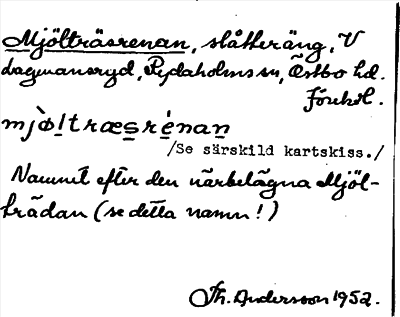 Mjölträsrenan, slåtteräng, V
Dagmansryd, Rydaholms sn, Östbo hd.
Jönk. l.
mjø̀ḷtræsrènan
/Se särskild kartskiss./
Namnet efter den närbelägna Mjöl-
trädan (se detta namn!)
Th. Andersson 1952.